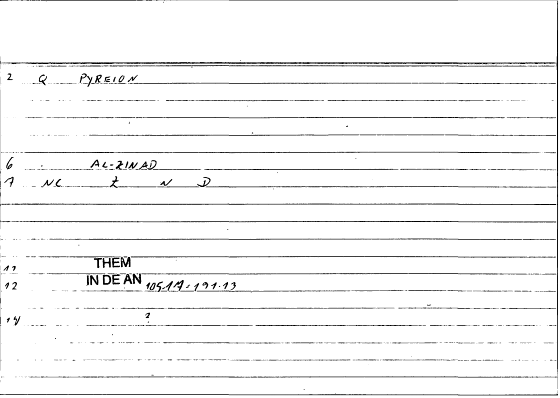 2 Q PYREION
6 AL-ZINAD
7 NC Z N D
11 THEM
12 IN DE AN 105.17-191.13
14 2